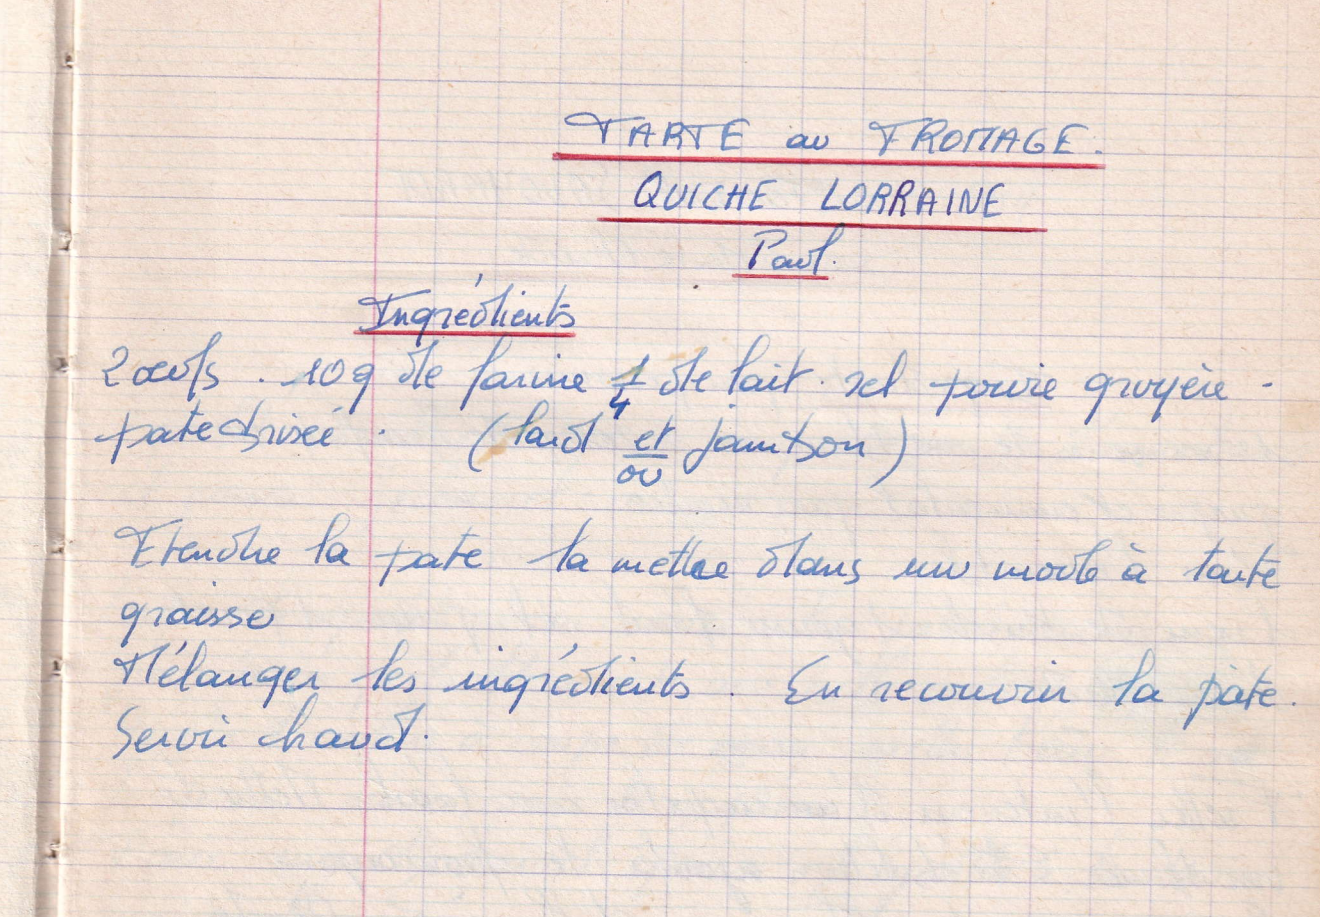 TARTE au FROMAGE.
QUICHE LORRAINE
Paul.
Ingrédients
2 oeufs. 10 g de farine 1/4 de lait. sel poivre gruyère -
pate brisée. (lard et/ou jambon)
Etendre la pate la mettre dans un moule à tarte
graissé
Mélanger les ingrédients. En recouvrir la pâte.
Servir chaud.